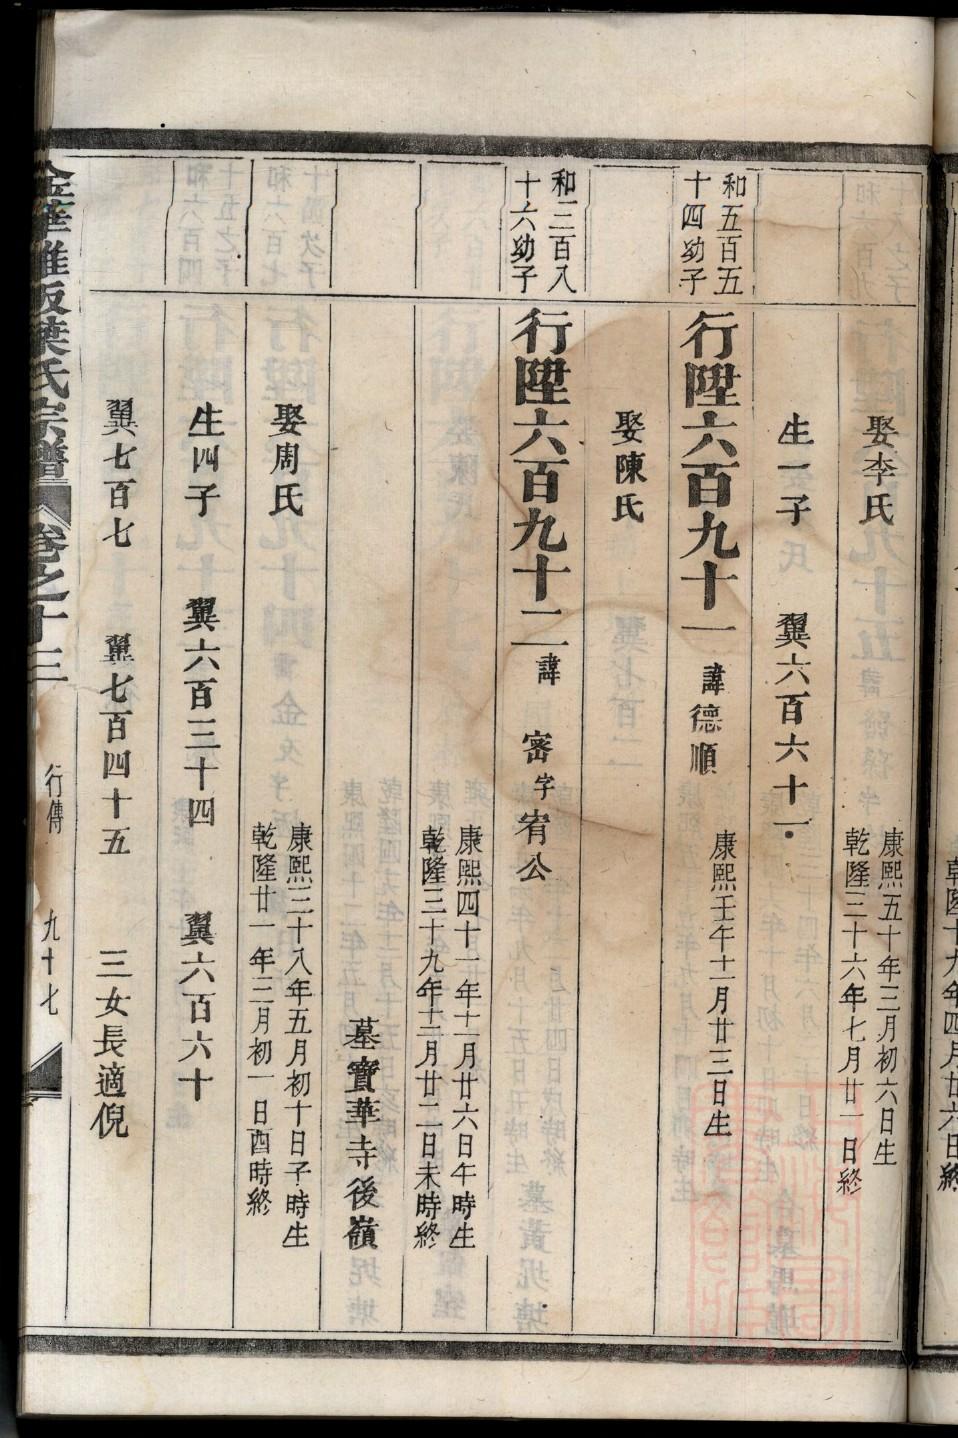 娶李氏
康熙五十年三月初六日生
乾隆三十六年七月廿一日終
生一子 翼六百六十一
和五百五
十四幼子
行陞六百九十一 諱德順
康熙壬午十一月廿三日生
娶陳氏
和三百八
十六幼子
行陞六百九十二 諱 密字宥公
康熙四十一年十一月廿六日午時生
乾隆三十九年十二月廿二日未時終
墓寶華寺後嶺
娶周氏
康熙三十八年五月初十日子時生
乾隆廿一年三月初一日酉時終
生四子 翼六百三十四 翼六百六十
翼七百七 翼七百四十五 三女長適倪
葉氏宗譜 卷之十三 行傳 九十七